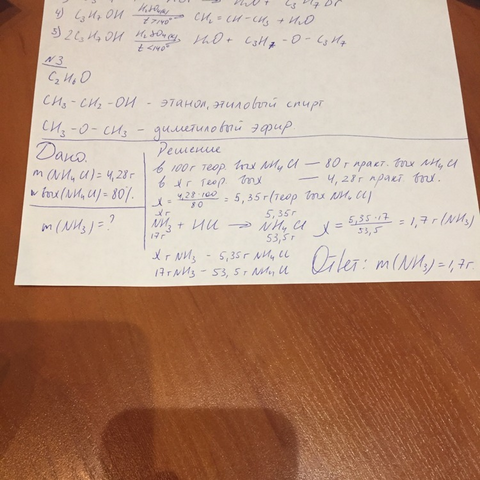 4) C₃H₇OH H₂SO₄(к) t>140° → CH₂ = CH - CH₃ + H₂O
5) 2C₃H₇OH H₂SO₄(к) t<140° → H₂O + C₃H₇ - O - C₃H₇
N3
C₂H₆O
CH₃ - CH₂ - OH - этанол, этиловый спирт
CH₃ - O - CH₃ - диметиловый эфир
Дано:
m(NH₄Cl) = 4,28 г
w вых(NH₄Cl) = 80%.
m(NH₃) = ?
Решение
в 100 г теор. вых NH₄Cl — 80 г практ. вых NH₄Cl
в x г теор. вых — 4,28 г практ. вых.
x = 4,28·100/80 = 5,35 г (теор вых NH₄Cl)
x г 5,35 г
NH₃ + HCl → NH₄Cl x = 5,35·17/53,5 = 1,7 г (NH₃)
17 г 53,5 г
x г NH₃ - 5,35 г NH₄Cl
17 г NH₃ - 53,5 г NH₄Cl
Ответ: m(NH₃) = 1,7 г.